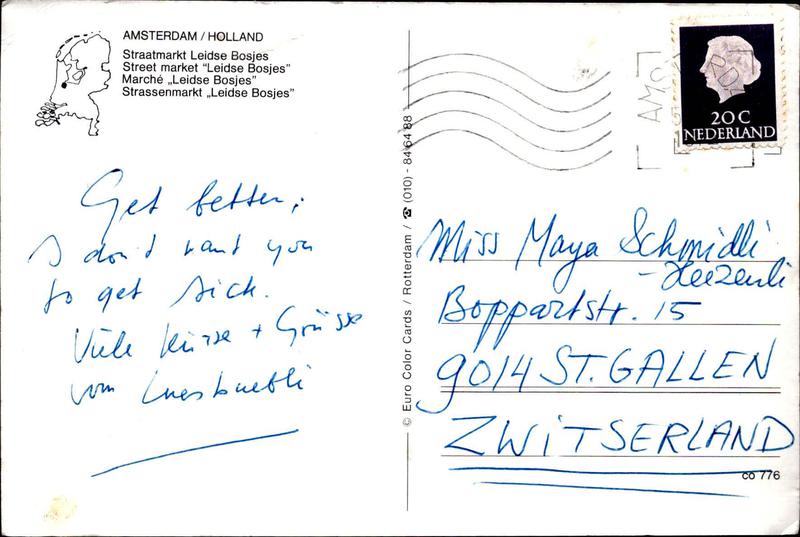 AMSTERDAM / HOLLAND
Straatmarkt Leidse Bosjes
Street market "Leidse Bosjes"
Marché „Leidse Bosjes"
Strassenmarkt „Leidse Bosjes"
Get better,
I don't want you
to get sick.
Viele Küsse + Grüsse
vom
© Euro Color Cards / Rotterdam / ☎ (010) - 84 64 88
AMS
20 C
NEDERLAND
Miss Maya Schmidli
Boppartstr. 15
9014 ST. GALLEN
ZWITSERLAND
co 776